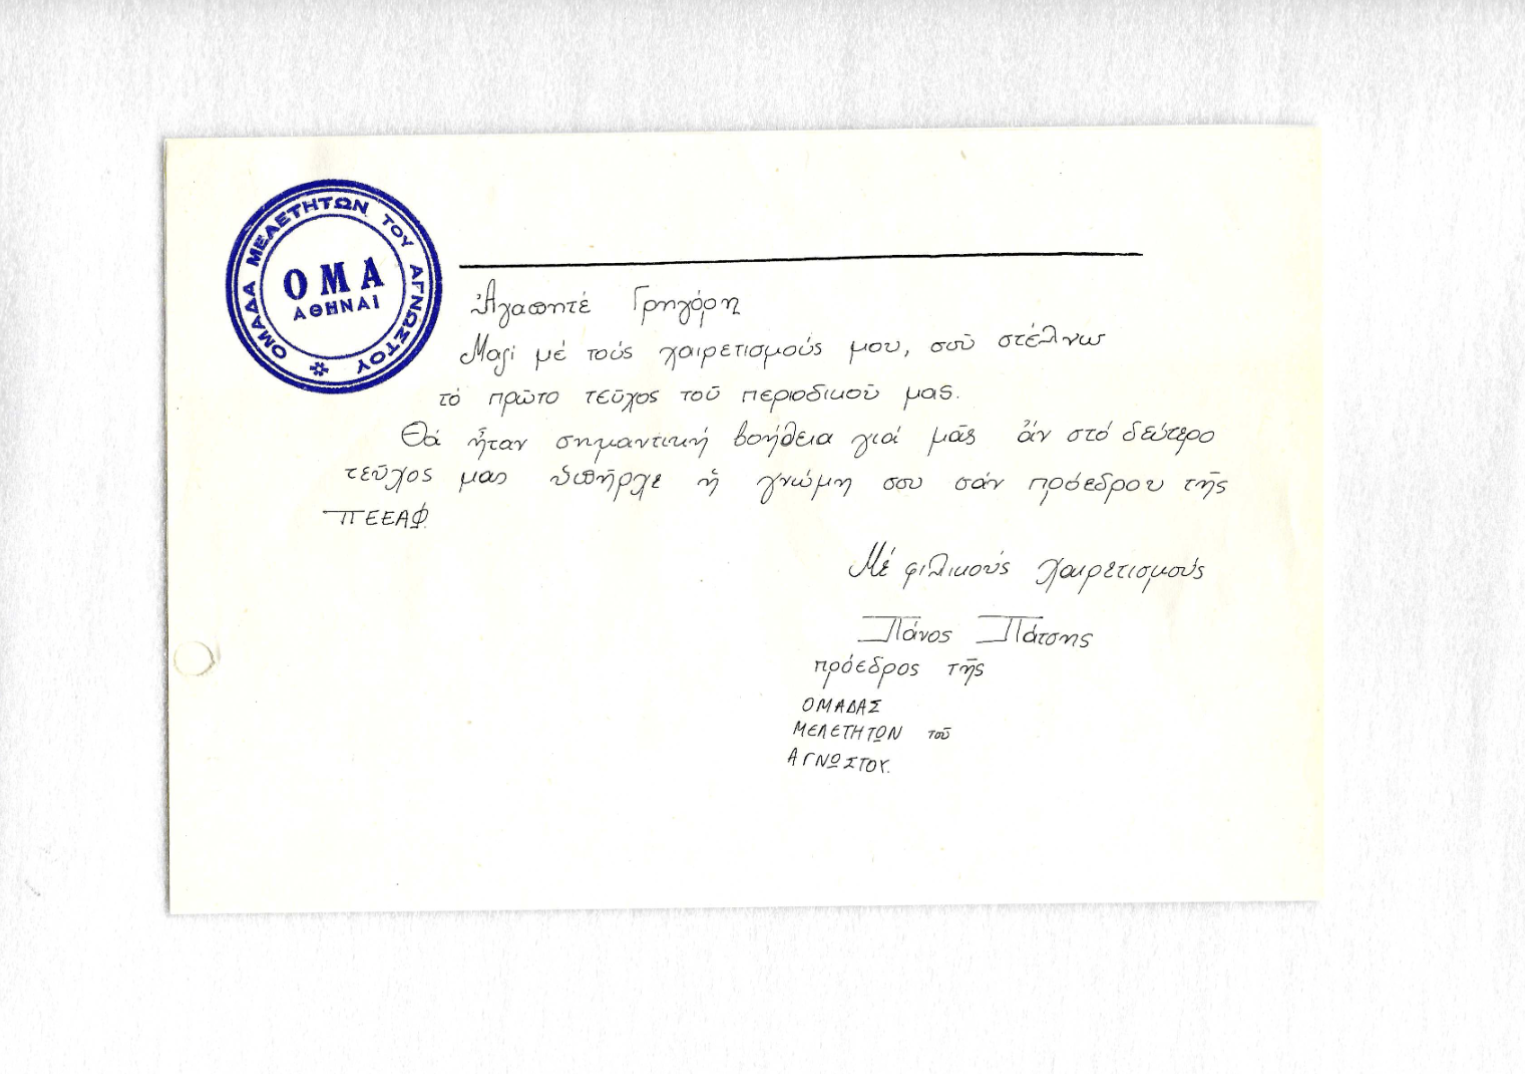 ΟΜΑΔΑ ΜΕΛΕΤΗΤΩΝ ΤΟΥ ΑΓΝΩΣΤΟΥ
ΟΜΑ
ΑΘΗΝΑΙ
Ἀγαπητέ Γρηγόρη
Μαζί μέ τούς χαιρετισμούς μου, σοῦ στέλνω
τό πρῶτο τεῦχος τοῦ περιοδικοῦ μας.
Θά ἦταν σημαντική βοήθεια γιά μᾶς ἄν στό δεύτερο
τεῦχος μας ὑπῆρχε ἡ γνώμη σου σάν πρόεδρου τῆς
ΠΕΕΑΦ.
Μέ φιλικούς χαιρετισμούς
Πάνος Πάτσης
πρόεδρος τῆς
ΟΜΑΔΑΣ
ΜΕΛΕΤΗΤΩΝ τοῦ
ΑΓΝΩΣΤΟΥ.